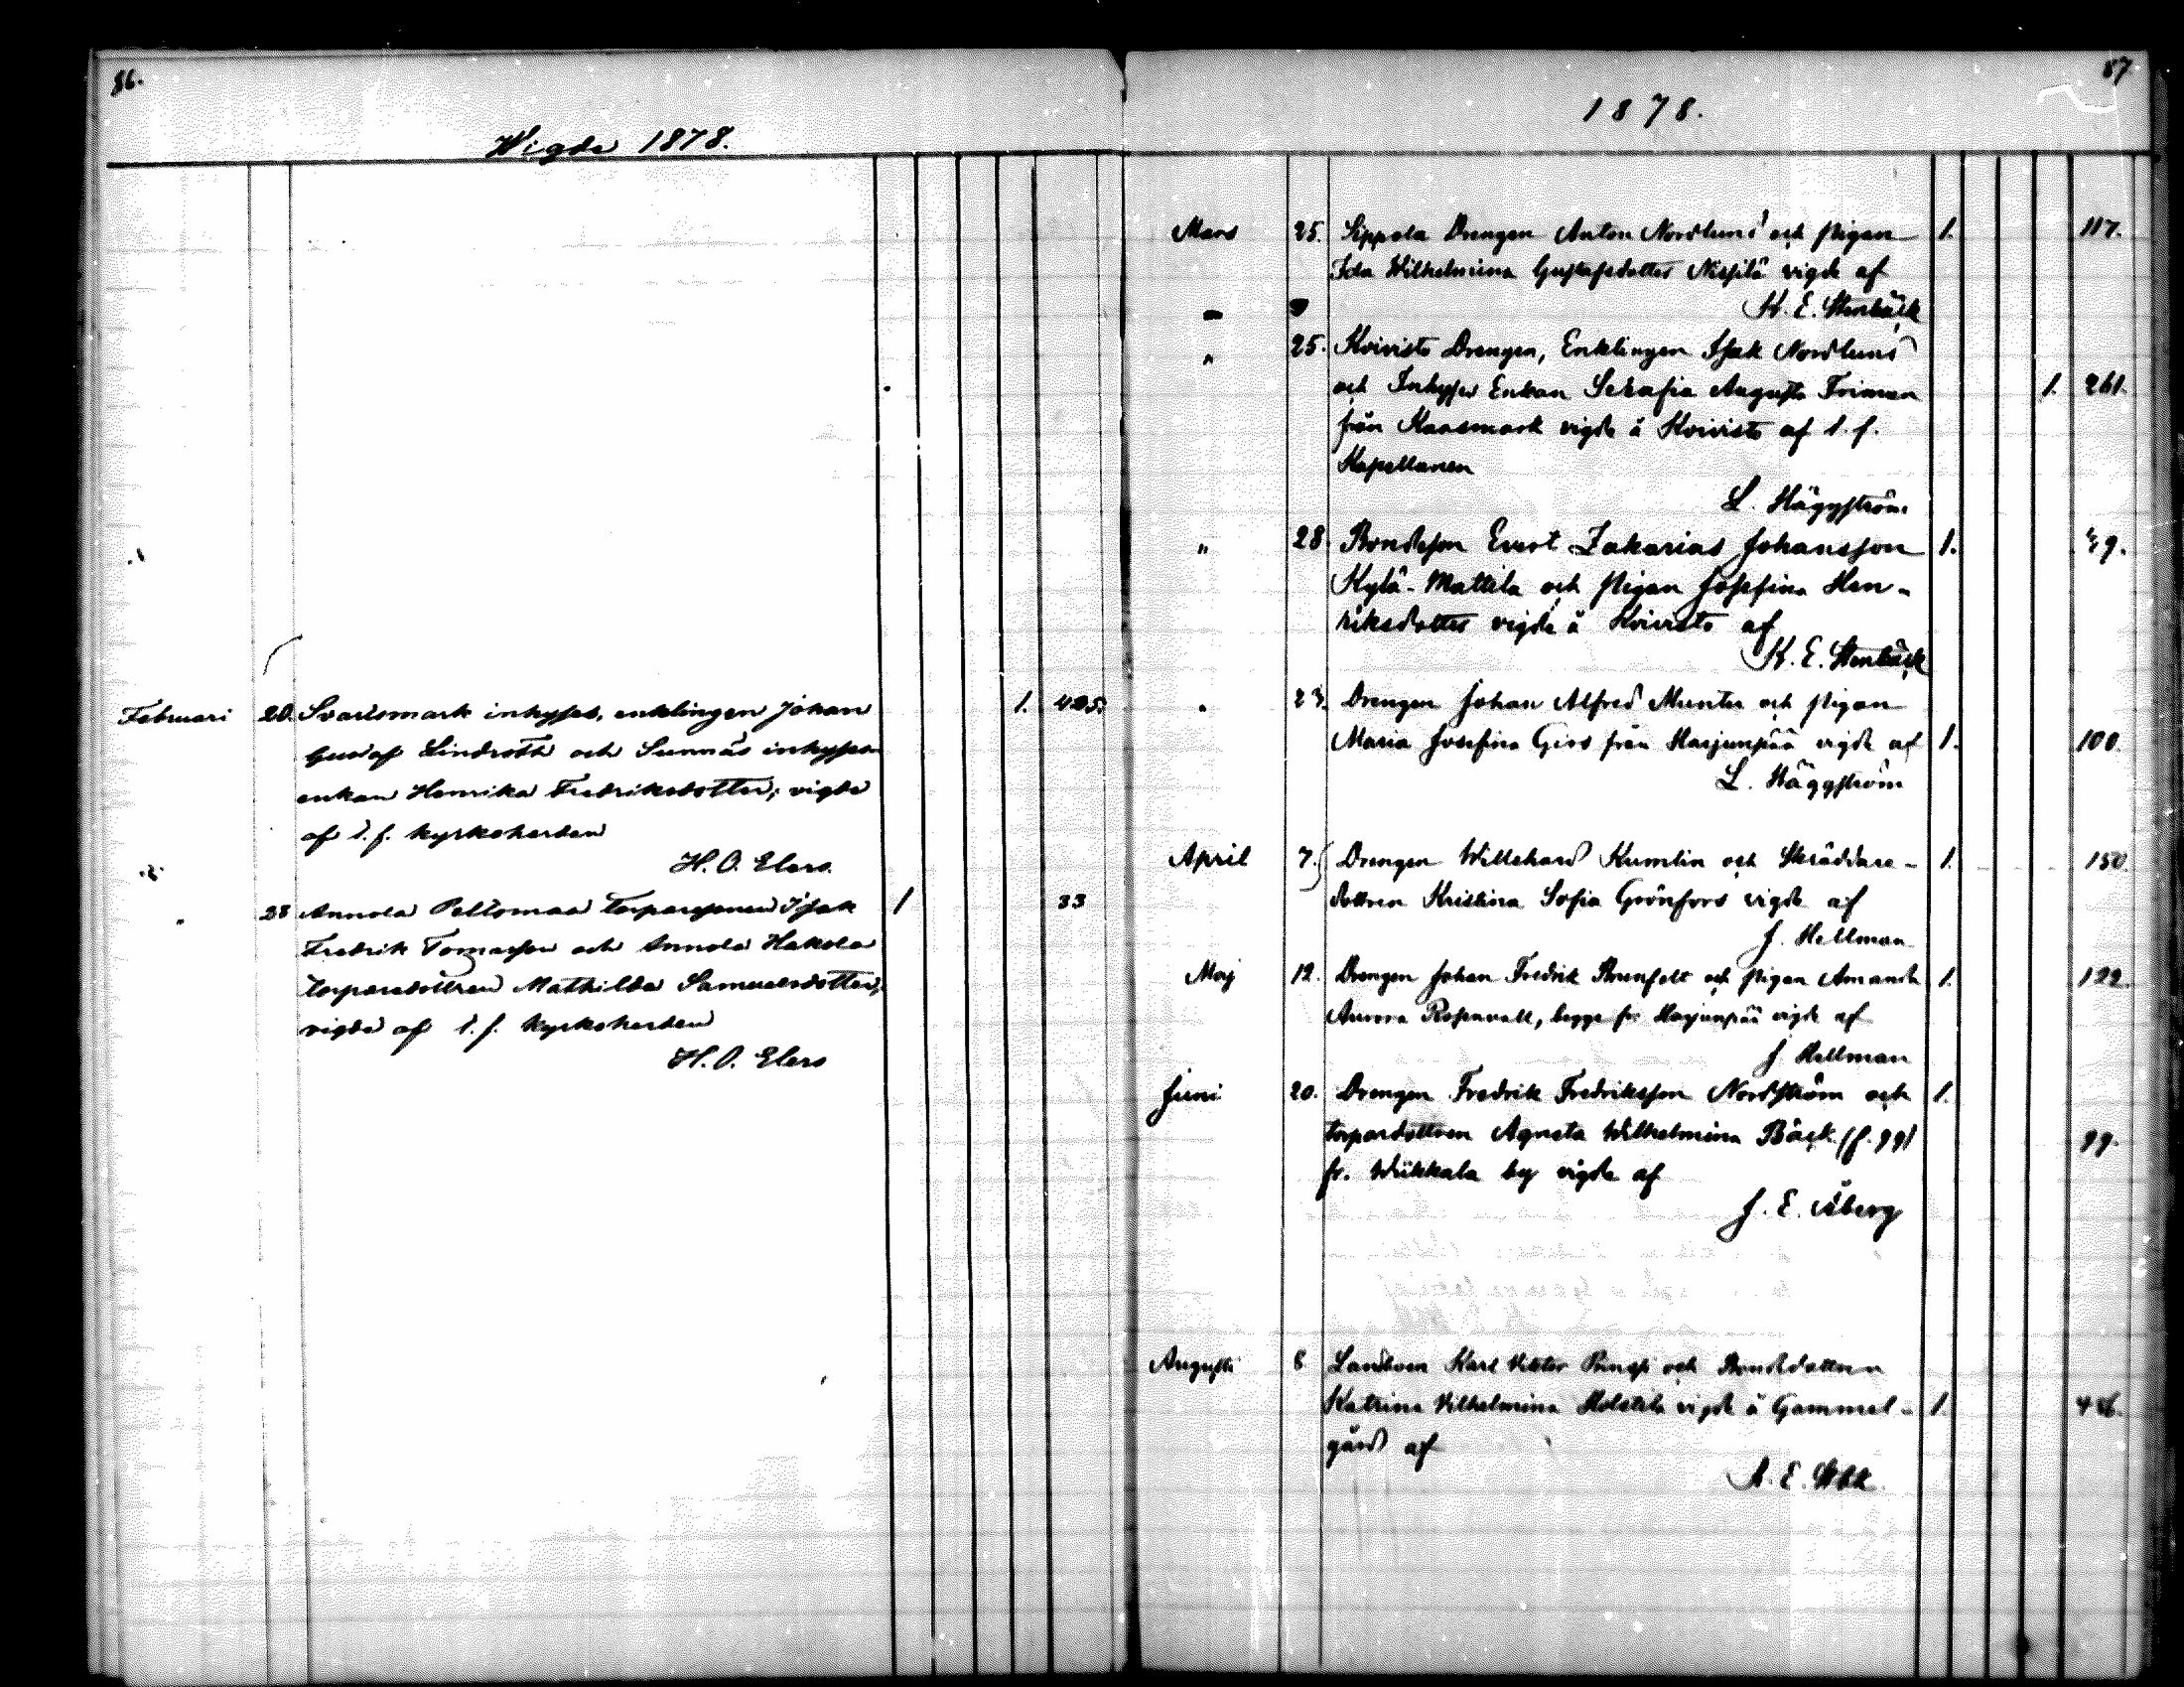 86.
Wigde 1878.
Februari 20. Svartsmark inhyses, enklingen Johan 1. 425.
Gustaf Lindroth och Sunnäs inhyses
enkan Henrika Fredriksdotter; vigde
af t. f. kyrkoherden
H. O. Elers.
" 28 Annola Peltomaa torparesonen Isak 1 33
Fredrik Tomasson och Annola Hakola
torparedottren Mathilda Samuelsdotter;
vigde af t. f. kyrkoherden
H. O. Elers
87
1878.
Mars 25. Sippola Drengen Anton Nordlund och pigan 1. 117.
Ida Wilhelmina Gustafsdotter Nissilä vigde af
K. E. Stenbäck
" 25. Koivisto Drengen, Enklingen Isak Nordlund
och Inhyses Enkan Serafia Augusta Friman 1. 261.
från Kaasmark vigde å Koivisto af t. f.
Kapellanen
L. Häggström
" 28. Bondeson Evert Zakarias Johansson 1.
Kylä-Mattila och pigan Josefina Hen-
riksdotter vigde å Koivisto af
K. E. Stenbäck
" Drengen Johan Alfred Munter och pigan
Maria Josefina Girs från Harjunpää vigde af 1. 100.
L. Häggström
April 7. Drengen Willehard Kumlin och Skräddare- 1. 150
dottren Kristina Sofia Grönfors vigde af
J. Hellman
Maj 12. Drengen Johan Fredrik och pigan Amanda 1. 122.
Aurora Rosenvall, begge fr. Harjunpää vigde af
J Hellman
Juni 20. Drengen Fredrik Fredriksson Nordström och 1.
torpardottren Agneta Wilhelmina Bäck (f. 99) 99.
fr. Wiikkala by vigde af
J. E. Åberg
Augusti Landboen Karl Viktor och Bondedottren
Katrina Vilhelmina vigde å Gammel- 1.
gård af